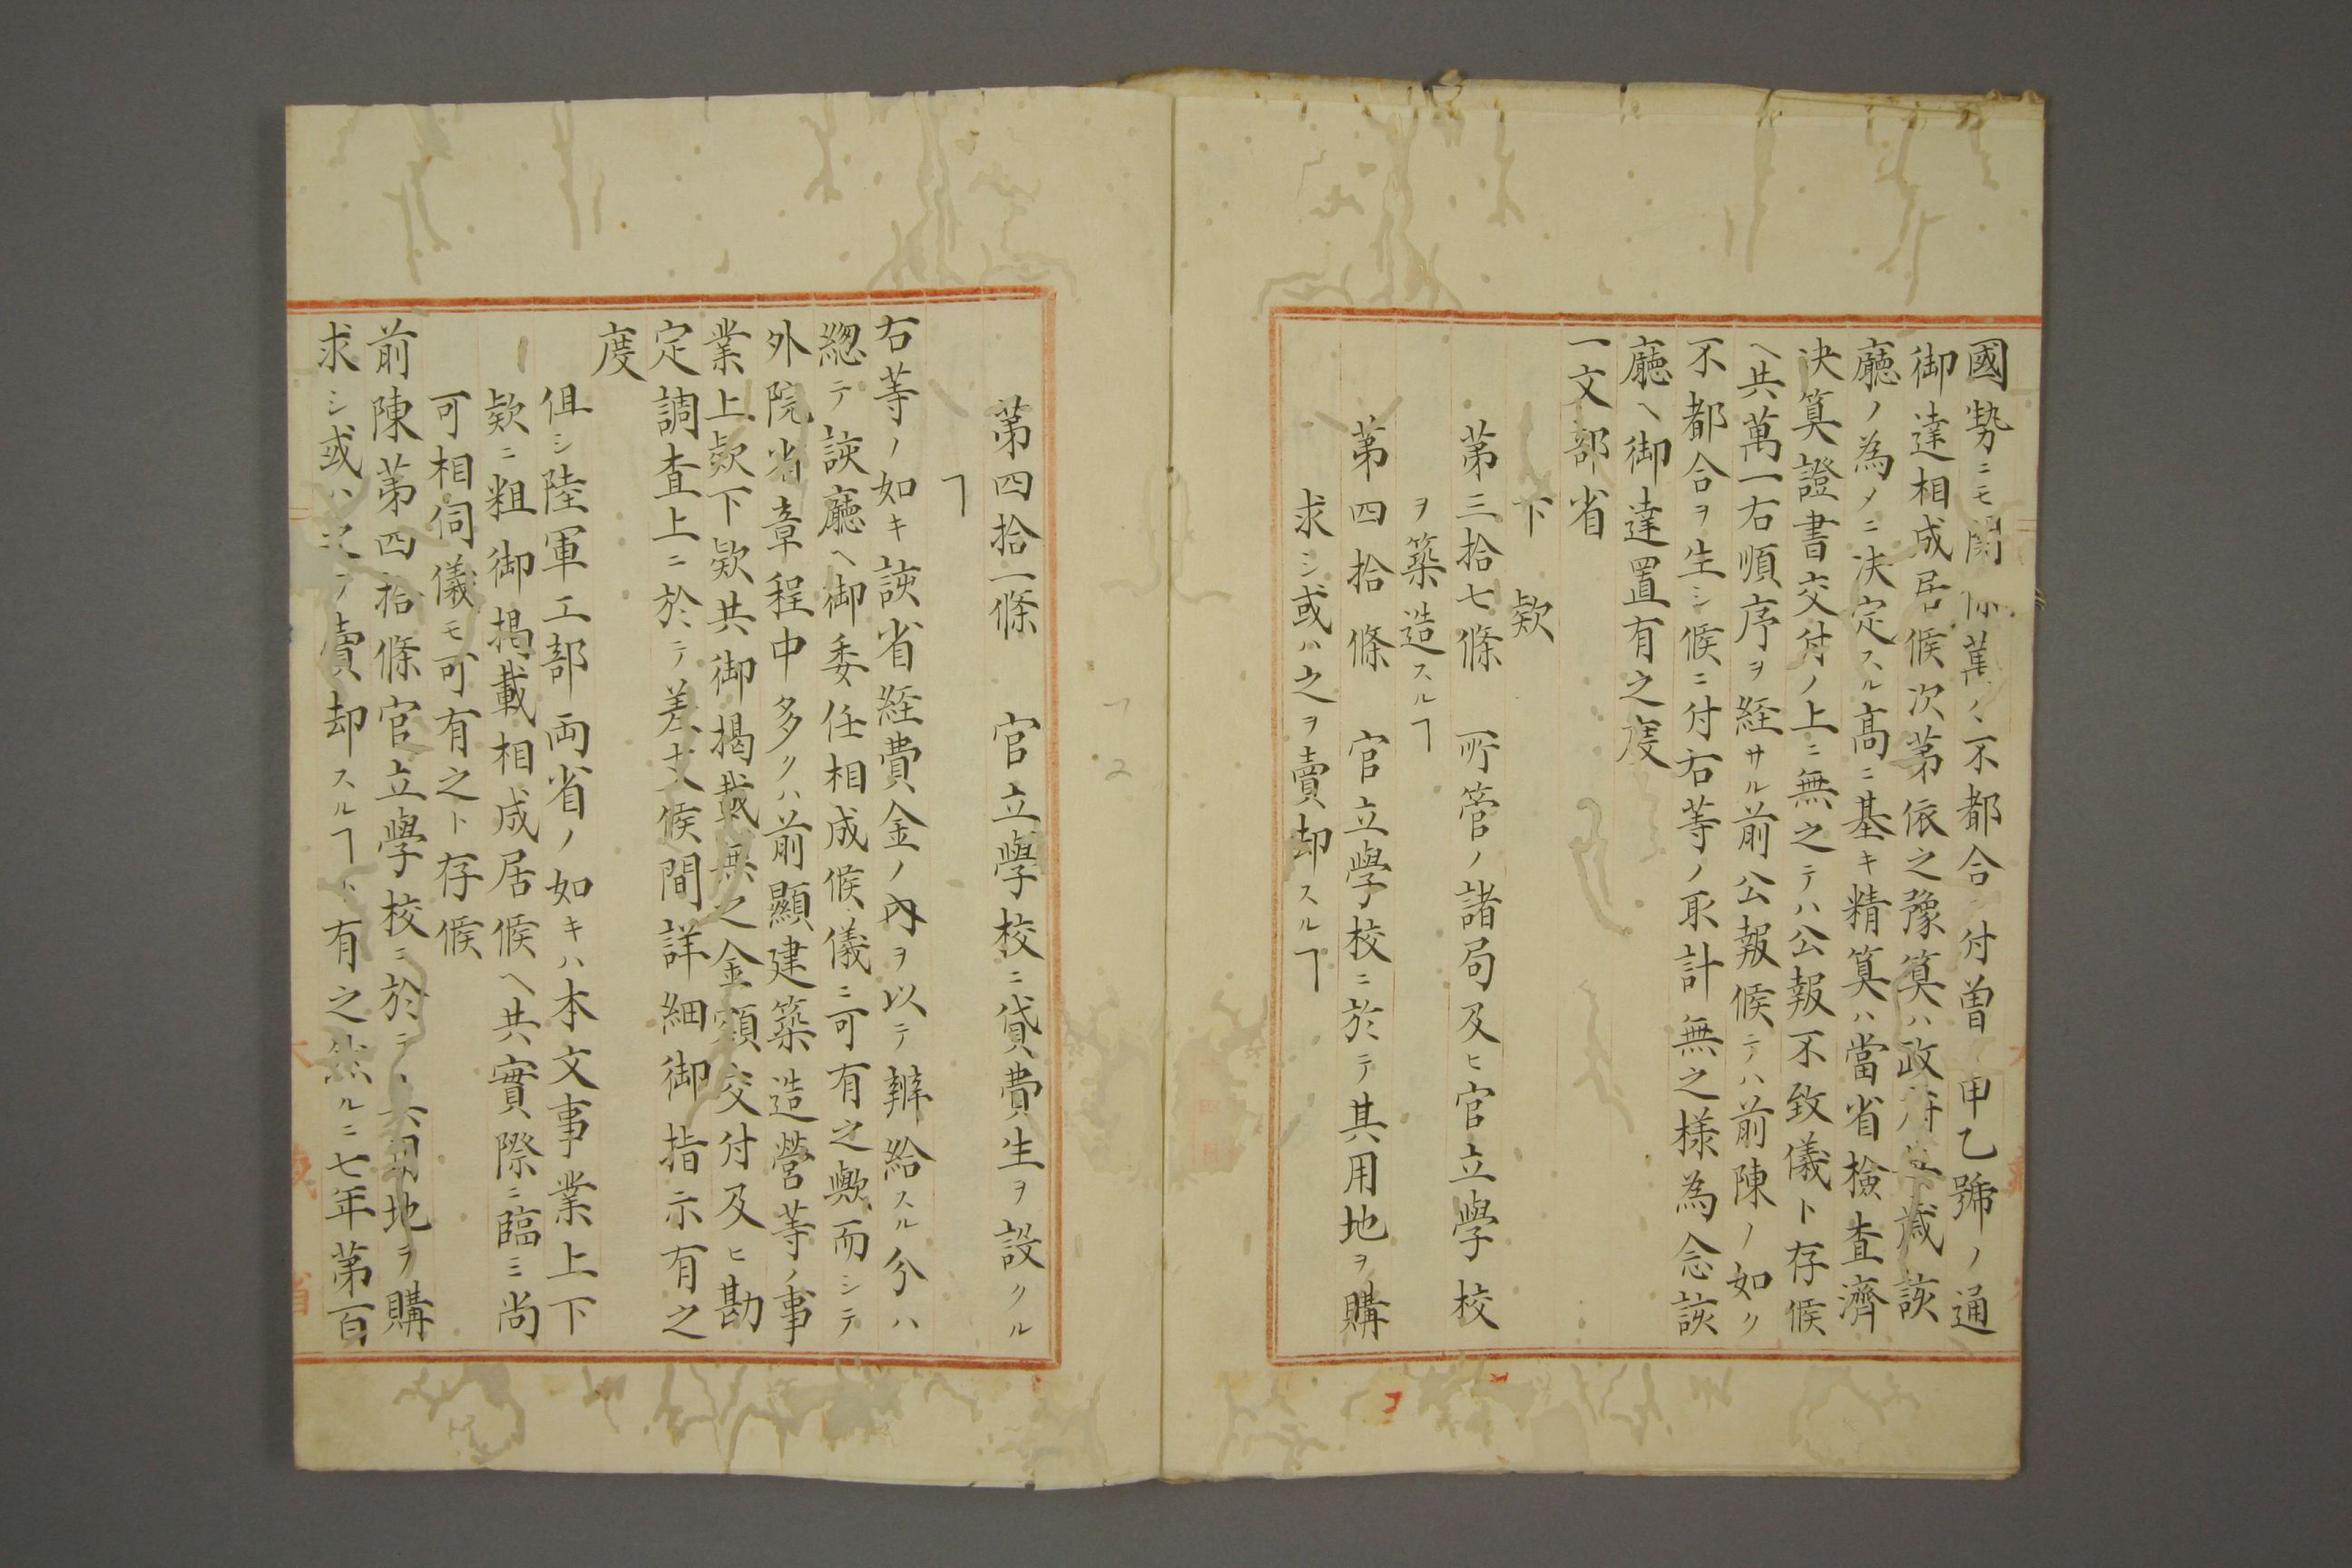 國勢ニモ関係萬々不都合ニ付曽テ甲乙號ノ通
御達相成居候次第依之豫算ハ政府之ヲ裁該
廳ノ為メニ決定スル高ニ基キ精算ハ當省檢査濟
決算證書交付ノ上ニ無之テハ公報不致儀ト存候
ヘ共萬一右順序ヲ経サル前公報候テハ前陳ノ如ク
不都合ヲ生シ候ニ付右等ノ取計無之様為念該
廳ヘ御達置有之度
一文部省
下欵
第三拾七條 所管ノ諸局及ヒ官立學校
ヲ築造スルヿ
第四拾條 官立學校ニ於テ其用地ヲ購
求シ或ハ之ヲ賣却スルヿ
第四拾一條 官立學校ニ貸費生ヲ設クル
ヿ
右等ノ如キ該省経費金ノ内ヲ以テ辨給スル分ハ
總テ該廳ヘ御委任相成候儀ニ可有之歟而シテ
外院省章程中多クハ前顯建築造營等ノ事
業上欵下欵共御掲載無之金額交付及ヒ勘
定調査上ニ於テ差支候間詳細御指示有之
度
但シ陸軍工部両省ノ如キハ本文事業上下
欵ニ粗御掲載相成居候ヘ共實際ニ臨ミ尚
可相伺儀モ可有之ト存候
前陳第四拾條官立學校ニ於テ其用地ヲ購
求シ或ハ之ヲ賣却スルヿト有之然ルニ七年第百